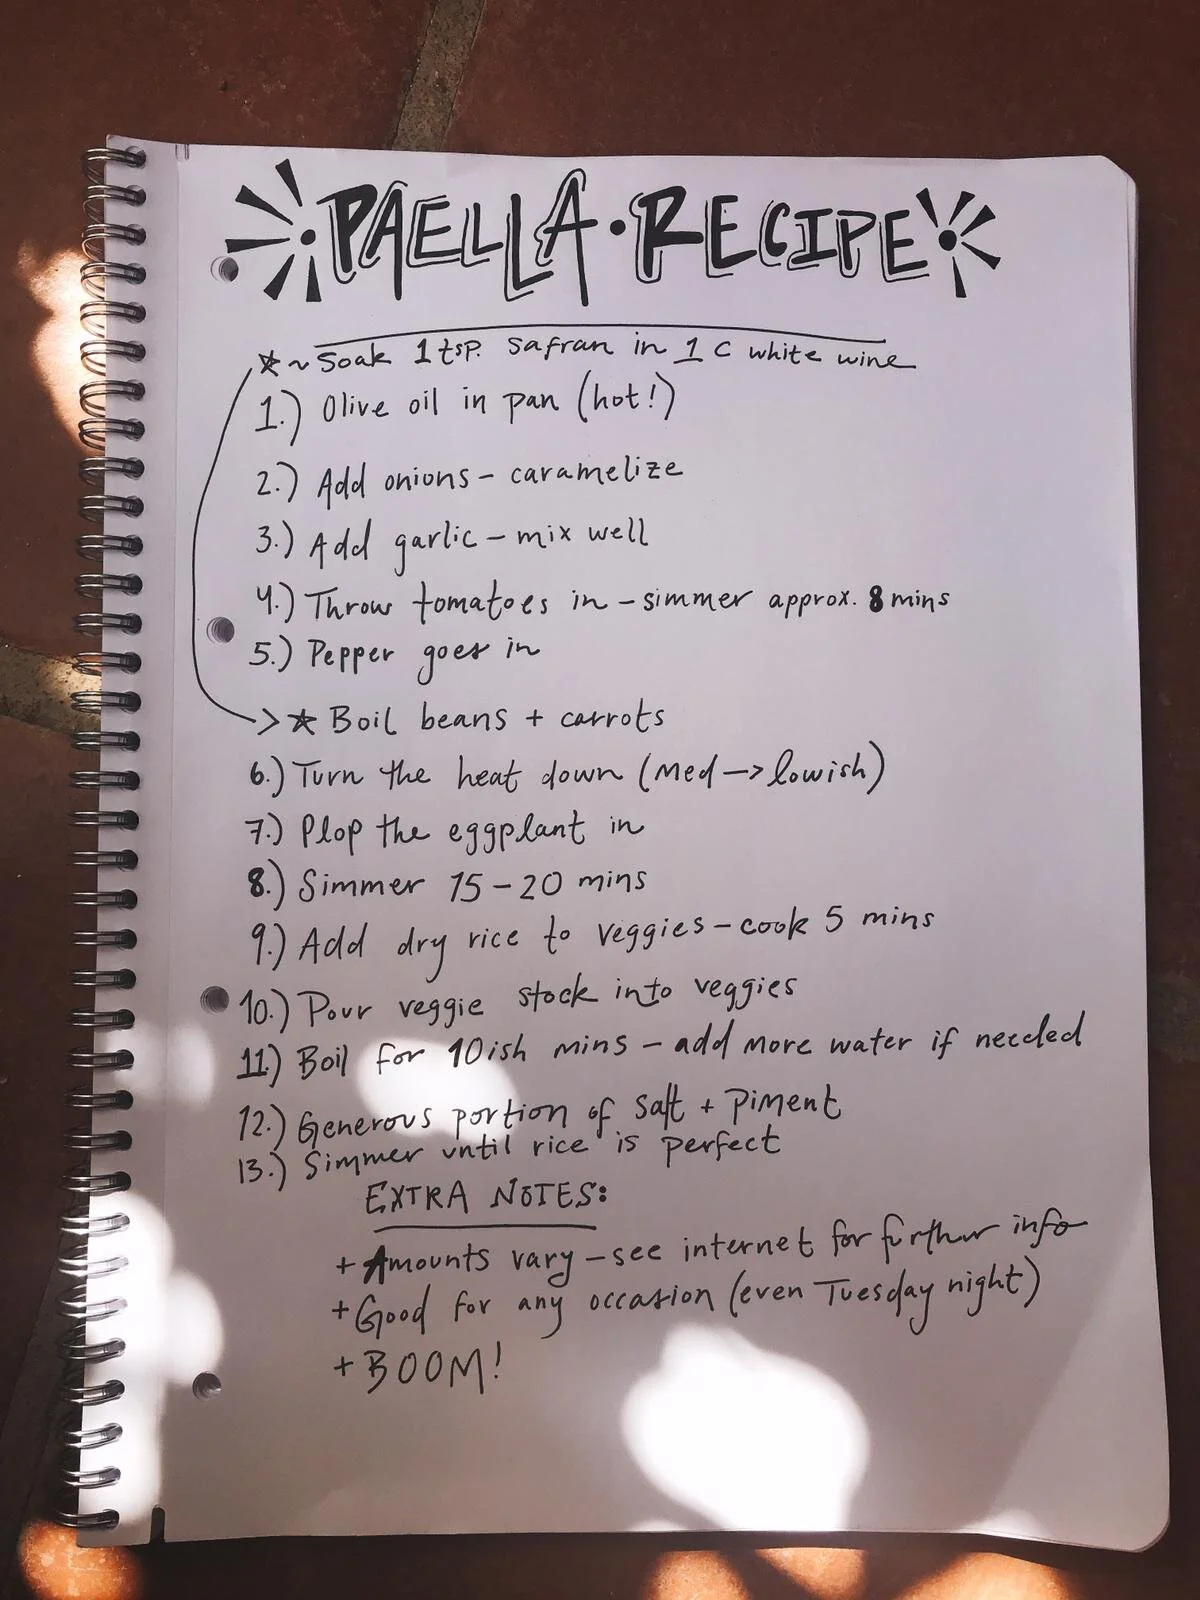 PAELLA • RECIPE
☆ ~ Soak 1 tsp. safran in 1 C white wine
1.) Olive oil in pan (hot!)
2.) Add onions – caramelize
3.) Add garlic – mix well
4.) Throw tomatoes in – simmer approx. 8 mins
5.) Pepper goes in
> ☆ Boil beans + carrots
6.) Turn the heat down (Med –> lowish)
7.) Plop the eggplant in
8.) Simmer 15 – 20 mins
9.) Add dry rice to veggies – cook 5 mins
10.) Pour veggie stock into veggies
11.) Boil for 10ish mins – add more water if needed
12.) Generous portion of Salt + Piment
13.) Simmer until rice is perfect
EXTRA NOTES:
+ Amounts vary – see internet for further info
+ Good for any occasion (even Tuesday night)
+ BOOM!